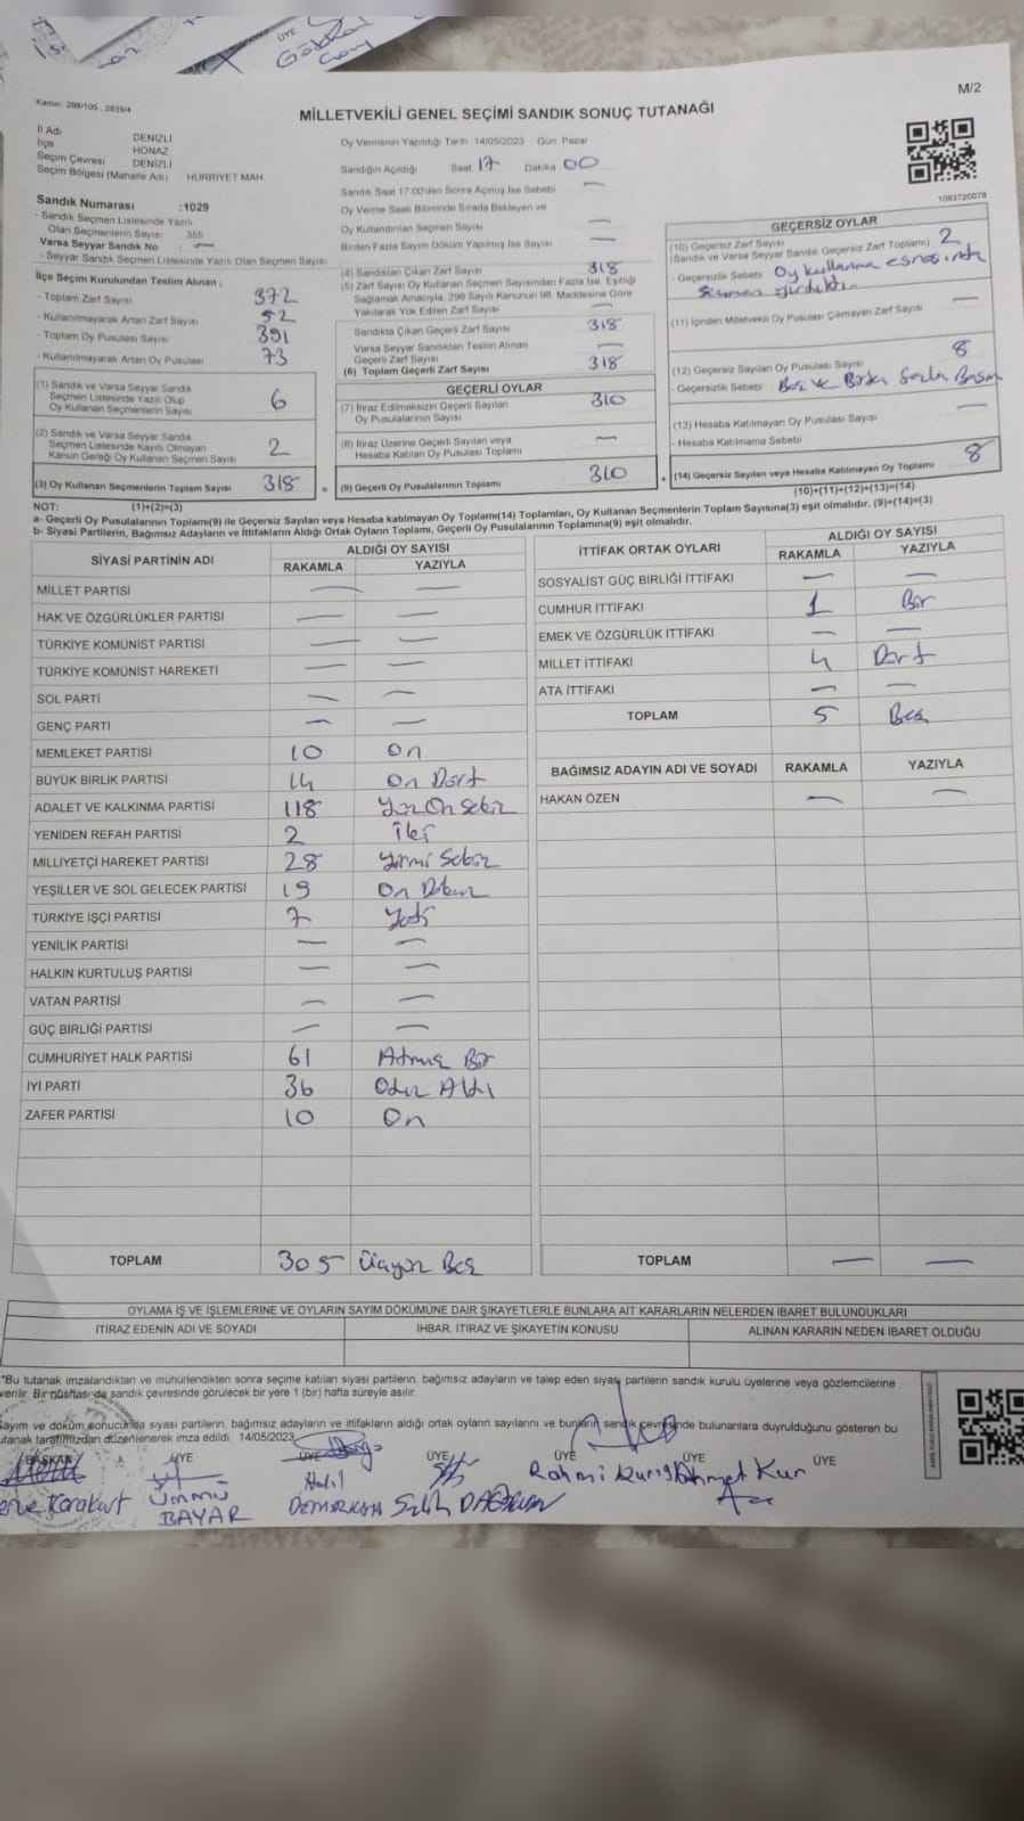 ÜYE
Kanun: 298/105 , 2839/4
M/2
MİLLETVEKİLİ GENEL SEÇİMİ SANDIK SONUÇ TUTANAĞI
İl Adı DENİZLİ
İlçe HONAZ
Seçim Çevresi DENİZLİ
Seçim Bölgesi (Mahalle Adı) HÜRRİYET MAH.
Sandık Numarası :1029
- Sandık Seçmen Listesinde Yazılı
Olan Seçmenlerin Sayısı 355
Varsa Seyyar Sandık No : —
- Seyyar Sandık Seçmen Listesinde Yazılı Olan Seçmen Sayısı
İlçe Seçim Kurulundan Teslim Alınan :
- Toplam Zarf Sayısı 372
- Kullanılmayarak Artan Zarf Sayısı 52
- Toplam Oy Pusulası Sayısı 391
- Kullanılmayarak Artan Oy Pusulası 73
(1) Sandık ve Varsa Seyyar Sandık
Seçmen Listesinde Yazılı Olup
Oy Kullanan Seçmenlerin Sayısı 6
(2) Sandık ve Varsa Seyyar Sandık
Seçmen Listesinde Kayıtlı Olmayan
Kanun Gereği Oy Kullanan Seçmen Sayısı 2
(3) Oy Kullanan Seçmenlerin Toplam Sayısı 318
(1)+(2)=(3)
Oy Vermenin Yapıldığı Tarih 14/05/2023 Gün Pazar
Sandığın Açıldığı Saat 17 Dakika 00
Sandık Saat 17.00'den Sonra Açılmış İse Sebebi —
Oy Verme Saati Bitiminde Sırada Bekleyen ve
Oy Kullandırılan Seçmen Sayısı —
Birden Fazla Sayım Döküm Yapılmış İse Sayısı —
(4) Sandıktan Çıkan Zarf Sayısı 318
(5) Zarf Sayısı Oy Kullanan Seçmen Sayısından Fazla İse, Eşitliği
Sağlamak Amacıyla, 298 Sayılı Kanunun 98. Maddesine Göre
Yakılarak Yok Edilen Zarf Sayısı —
Sandıkta Çıkan Geçerli Zarf Sayısı 318
Varsa Seyyar Sandıktan Teslim Alınan
Geçerli Zarf Sayısı —
(6) Toplam Geçerli Zarf Sayısı 318
GEÇERLİ OYLAR
(7) İtiraz Edilmeksizin Geçerli Sayılan
Oy Pusulalarının Sayısı 310
(8) İtiraz Üzerine Geçerli Sayılan veya
Hesaba Katılan Oy Pusulası Toplamı —
(9) Geçerli Oy Pusulalarının Toplamı 310
1083720078
GEÇERSİZ OYLAR
(10) Geçersiz Zarf Sayısı
(Sandık ve Varsa Seyyar Sandık Geçersiz Zarf Toplamı) 2
- Geçersizlik Sebebi: Oy kullanma esnasında
(11) İçinden Milletvekili Oy Pusulası Çıkmayan Zarf Sayısı —
(12) Geçersiz Sayılan Oy Pusulası Sayısı 8
- Geçersizlik Sebebi:
(13) Hesaba Katılmayan Oy Pusulası Sayısı —
- Hesaba Katılmama Sebebi
(14) Geçersiz Sayılan veya Hesaba Katılmayan Oy Toplamı 8
(10)+(11)+(12)+(13)=(14)
NOT:
a- Geçerli Oy Pusulalarının Toplamı(9) ile Geçersiz Sayılan veya Hesaba katılmayan Oy Toplamı(14) Toplamları, Oy Kullanan Seçmenlerin Toplam Sayısına(3) eşit olmalıdır. (9)+(14)=(3)
b- Siyasi Partilerin, Bağımsız Adayların ve İttifakların Aldığı Ortak Oyların Toplamı, Geçerli Oy Pusulalarının Toplamına(9) eşit olmalıdır.
SİYASİ PARTİNİN ADI ALDIĞI OY SAYISI
RAKAMLA YAZIYLA
MİLLET PARTİSİ — —
HAK VE ÖZGÜRLÜKLER PARTİSİ — —
TÜRKİYE KOMÜNİST PARTİSİ — —
TÜRKİYE KOMÜNİST HAREKETİ — —
SOL PARTİ — —
GENÇ PARTİ — —
MEMLEKET PARTİSİ 10 On
BÜYÜK BİRLİK PARTİSİ 14 On Dört
ADALET VE KALKINMA PARTİSİ 118 Yüz On Sekiz
YENİDEN REFAH PARTİSİ 2 İki
MİLLİYETÇİ HAREKET PARTİSİ 28 Yirmi Sekiz
YEŞİLLER VE SOL GELECEK PARTİSİ 19 On Dokuz
TÜRKİYE İŞÇİ PARTİSİ 7 Yedi
YENİLİK PARTİSİ — —
HALKIN KURTULUŞ PARTİSİ — —
VATAN PARTİSİ — —
GÜÇ BİRLİĞİ PARTİSİ — —
CUMHURİYET HALK PARTİSİ 61 Atmış Bir
İYİ PARTİ 36 Otuz Altı
ZAFER PARTİSİ 10 On
TOPLAM 305 Üçyüz Beş
İTTİFAK ORTAK OYLARI ALDIĞI OY SAYISI
RAKAMLA YAZIYLA
SOSYALİST GÜÇ BİRLİĞİ İTTİFAKI — —
CUMHUR İTTİFAKI 1 Bir
EMEK VE ÖZGÜRLÜK İTTİFAKI — —
MİLLET İTTİFAKI 4 Dört
ATA İTTİFAKI — —
TOPLAM 5 Beş
BAĞIMSIZ ADAYIN ADI VE SOYADI RAKAMLA YAZIYLA
HAKAN ÖZEN — —
TOPLAM — —
OYLAMA İŞ VE İŞLEMLERİNE VE OYLARIN SAYIM DÖKÜMÜNE DAİR ŞİKAYETLERLE BUNLARA AİT KARARLARIN NELERDEN İBARET BULUNDUKLARI
İTİRAZ EDENİN ADI VE SOYADI İHBAR, İTİRAZ VE ŞİKAYETİN KONUSU ALINAN KARARIN NEDEN İBARET OLDUĞU
"Bu tutanak imzalandıktan ve mühürlendikten sonra seçime katılan siyasi partilerin, bağımsız adayların ve talep eden siyasi partilerin sandık kurulu üyelerine veya gözlemcilerine
verilir. Bir nüshası da sandık çevresinde görülecek bir yere 1 (bir) hafta süreyle asılır.
Sayım ve döküm sonucunda siyasi partilerin, bağımsız adayların ve ittifakların aldığı ortak oyların sayılarını ve bunların sandık çevresinde bulunanlara duyrulduğunu gösteren bu
tutanak tarafımızdan düzenlenerek imza edildi. 14/05/2023
BAŞKAN ÜYE ÜYE ÜYE ÜYE ÜYE ÜYE
Karakurt Ümmü BAYAR Halil DEMİRKAN Salih Rahmi Ahmet Kur